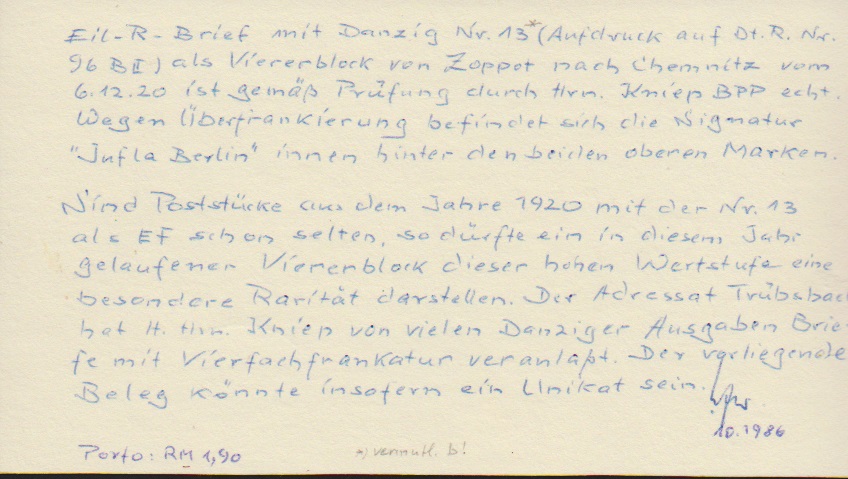 Eil-R-Brief mit Danzig Nr. 13* (Aufdruck auf Dt. R. Nr.
96 B II) als Viererblock von Zoppot nach Chemnitz vom
6.12.20 ist gemäß Prüfung durch Hrn. Kniep BPP echt.
Wegen Überfrankierung befindet sich die Signatur
"Jufla Berlin" innen hinter den beiden oberen Marken.
Sind Poststücke aus dem Jahre 1920 mit der Nr. 13
als EF schon selten, so dürfte ein in diesem Jahr
gelaufener Viererblock dieser hohen Wertstufe eine
besondere Rarität darstellen. Der Adressat Trübsbach
hat lt. Hrn. Kniep von vielen Danziger Ausgaben Brie-
fe mit Vierfachfrankatur veranlaßt. Der vorliegende
Beleg könnte insofern ein Unikat sein.
10.1986
Porto: RM 1,90
*) vermutl. b!